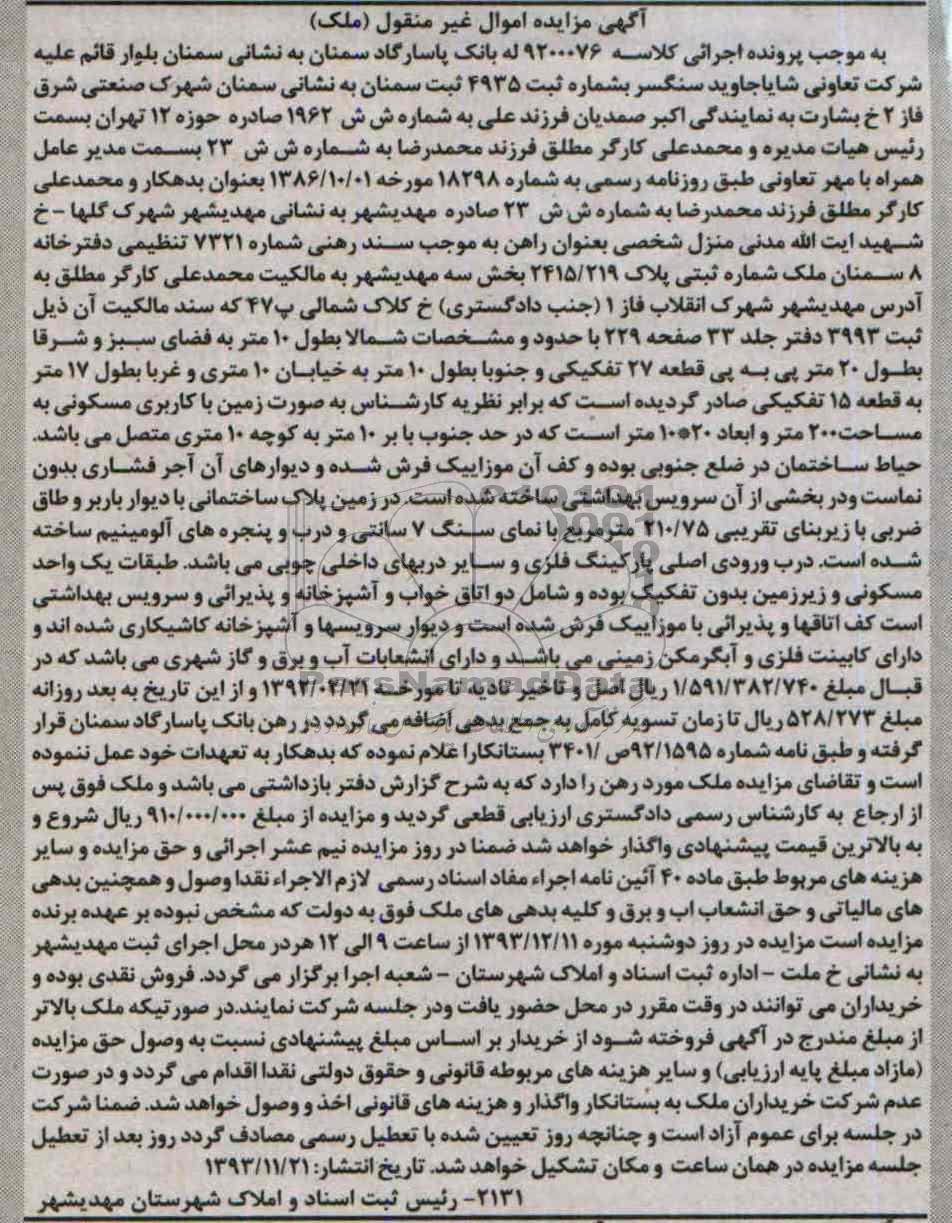 آگهی مزایده اموال غیر منقول (ملک)
به موجب پرونده اجرائی کلاسه ۹۲۰۰۰۷۶ له بانک پاسارگاد سمنان به نشانی سمنان بلوار قائم علیه
شرکت تعاونی شایاجاوید سنگسر بشماره ثبت ۴۹۳۵ ثبت سمنان به نشانی سمنان شهرک صنعتی شرق
فاز ۲ خ بشارت به نمایندگی اکبر صمدیان فرزند علی به شماره ش ش ۱۹۶۲ صادره حوزه ۱۲ تهران بسمت
رئیس هیات مدیره و محمدعلی کارگر مطلق فرزند محمدرضا به شماره ش ش ۲۳ بسمت مدیر عامل
همراه با مهر تعاونی طبق روزنامه رسمی به شماره ۱۸۲۹۸ مورخه ۱۳۸۶/۱۰/۰۱ بعنوان بدهکار و محمدعلی
کارگر مطلق فرزند محمدرضا به شماره ش ش ۲۳ صادره مهدیشهر به نشانی مهدیشهر شهرک گلها -خ
شهید ایت الله مدنی منزل شخصی بعنوان راهن به موجب سند رهنی شماره ۷۳۲۱ تنظیمی دفترخانه
۸ سمنان ملک شماره ثبتی پلاک ۲۴۱۵/۲۱۹ بخش سه مهدیشهر به مالکیت محمدعلی کارگر مطلق به
آدرس مهدیشهر شهرک انقلاب فاز ۱ (جنب دادگستری) خ کلاک شمالی پ۴۷ که سند مالکیت آن ذیل
ثبت ۳۹۹۳ دفتر جلد ۳۳ صفحه ۲۲۹ با حدود و مشخصات شمالا بطول ۱۰ متر به فضای سبز و شرقا
بطول ۲۰ متر پی به پی قطعه ۲۷ تفکیکی و جنوبا بطول ۱۰ متر به خیابان ۱۰ متری و غربا بطول ۱۷ متر
به قطعه ۱۵ تفکیکی صادر گردیده است که برابر نظریه کارشناس به صورت زمین با کاربری مسکونی به
مساحت۲۰۰ متر و ابعاد ۲۰*۱۰ متر است که در حد جنوب با بر ۱۰ متر به کوچه ۱۰ متری متصل می باشد.
حیاط ساختمان در ضلع جنوبی بوده و کف آن موزاییک فرش شده و دیوارهای آن آجر فشاری بدون
نماست ودر بخشی از آن سرویس بهداشتی ساخته شده است. در زمین پلاک ساختمانی با دیوار باربر و طاق
ضربی با زیربنای تقریبی ۲۱۰/۷۵ مترمربع با نمای سنگ ۷ سانتی و درب و پنجره های آلومینیم ساخته
شده است. درب ورودی اصلی پارکینگ فلزی و سایر دربهای داخلی چوبی می باشد. طبقات یک واحد
مسکونی و زیرزمین بدون تفکیک بوده و شامل دو اتاق خواب و آشپزخانه و پذیرائی و سرویس بهداشتی
است کف اتاقها و پذیرائی با موزاییک فرش شده است و دیوار سرویسها و آشپزخانه کاشیکاری شده اند و
دارای کابینت فلزی و آبگرمکن زمینی می باشد و دارای انشعابات آب و برق و گاز شهری می باشد که در
قبال مبلغ ۱/۵۹۱/۳۸۲/۷۴۰ ریال اصل و تاخیر تادیه تا مورخه ۱۳۹۲/۰۴/۲۱ و از این تاریخ به بعد روزانه
مبلغ ۵۲۸/۲۷۳ ریال تا زمان تسویه کامل به جمع بدهی اضافه می گردد در رهن بانک پاسارگاد سمنان قرار
گرفته و طبق نامه شماره ۹۲/۱۵۹۵ص /۳۴۰۱ بستانکارا علام نموده که بدهکار به تعهدات خود عمل ننموده
است و تقاضای مزایده ملک مورد رهن را دارد که به شرح گزارش دفتر بازداشتی می باشد و ملک فوق پس
از ارجاع به کارشناس رسمی دادگستری ارزیابی قطعی گردید و مزایده از مبلغ ۹۱۰/۰۰۰/۰۰۰ ریال شروع و
به بالاترین قیمت پیشنهادی واگذار خواهد شد ضمنا در روز مزایده نیم عشر اجرائی و حق مزایده و سایر
هزینه های مربوط طبق ماده ۴۰ آئین نامه اجراء مفاد اسناد رسمی لازم الاجراء نقدا وصول و همچنین بدهی
های مالیاتی و حق انشعاب اب و برق و کلیه بدهی های ملک فوق به دولت که مشخص نبوده بر عهده برنده
مزایده است مزایده در روز دوشنبه موره ۱۳۹۳/۱۲/۱۱ از ساعت ۹ الی ۱۲ هردر محل اجرای ثبت مهدیشهر
به نشانی خ ملت - اداره ثبت اسناد و املاک شهرستان - شعبه اجرا برگزار می گردد. فروش نقدی بوده و
خریداران می توانند در وقت مقرر در محل حضور یافت ودر جلسه شرکت نمایند.در صورتیکه ملک بالاتر
از مبلغ مندرج در آگهی فروخته شود از خریدار بر اساس مبلغ پیشنهادی نسبت به وصول حق مزایده
(مازاد مبلغ پایه ارزیابی) و سایر هزینه های مربوطه قانونی و حقوق دولتی نقدا اقدام می گردد و در صورت
عدم شرکت خریداران ملک به بستانکار واگذار و هزینه های قانونی اخذ و وصول خواهد شد. ضمنا شرکت
در جلسه برای عموم آزاد است و چنانچه روز تعیین شده با تعطیل رسمی مصادف گردد روز بعد از تعطیل
جلسه مزایده در همان ساعت و مکان تشکیل خواهد شد. تاریخ انتشار: ۱۳۹۳/۱۱/۲۱
۲۱۳۱- رئیس ثبت اسناد و املاک شهرستان مهدیشهر
ParsNamadData